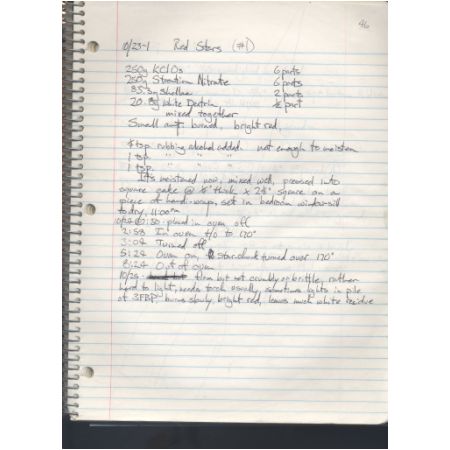 46
10/23-1 Red Stars (#1)
250g KClO3 6 parts
250g Strontium Nitrate 6 parts
83.3g Shellac 2 parts
20.8g White Dextrin ½ part
mixed together
Small amt burned, bright red.
tsp rubbing alcohol added. not enough to moisten
1 tsp " " "
1 tsp " " "
It's moistened now, mixed well, pressed into
square cake @ thick x 2 square on a
piece of wrap, set in bedroom window-sill
to dry, 11:00pm
10:30 placed in oven off
2:58 In oven t/o to 170°
3:04 Turned off
5:24 Oven on, star chunk turned over 170°
8:24 Out of oven
10/25 firm but not crumbly or brittle, rather
hard to light, needs torch usually, sometimes lights in pile
of 3FBP. burns slowly, bright red, leaves much white residue